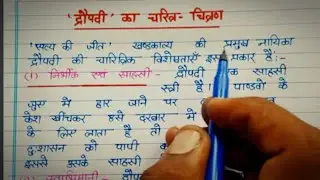 'द्रौपदी' का चरित्र-चित्रण
'सत्य की जीत' खण्डकाव्य की प्रमुख नायिका
द्रौपदी की चारित्रिक विशेषताएँ इस प्रकार है:-
(1) निर्भीक एवं साहसी- द्रौपदी एक साहसी
स्त्री है। पाण्डवो के
जुए में हार जाने पर
केश खींचकर उसे दरबार में
के लिए लाता है तो
दुःशासन को पापी
इससे उसके साहसी